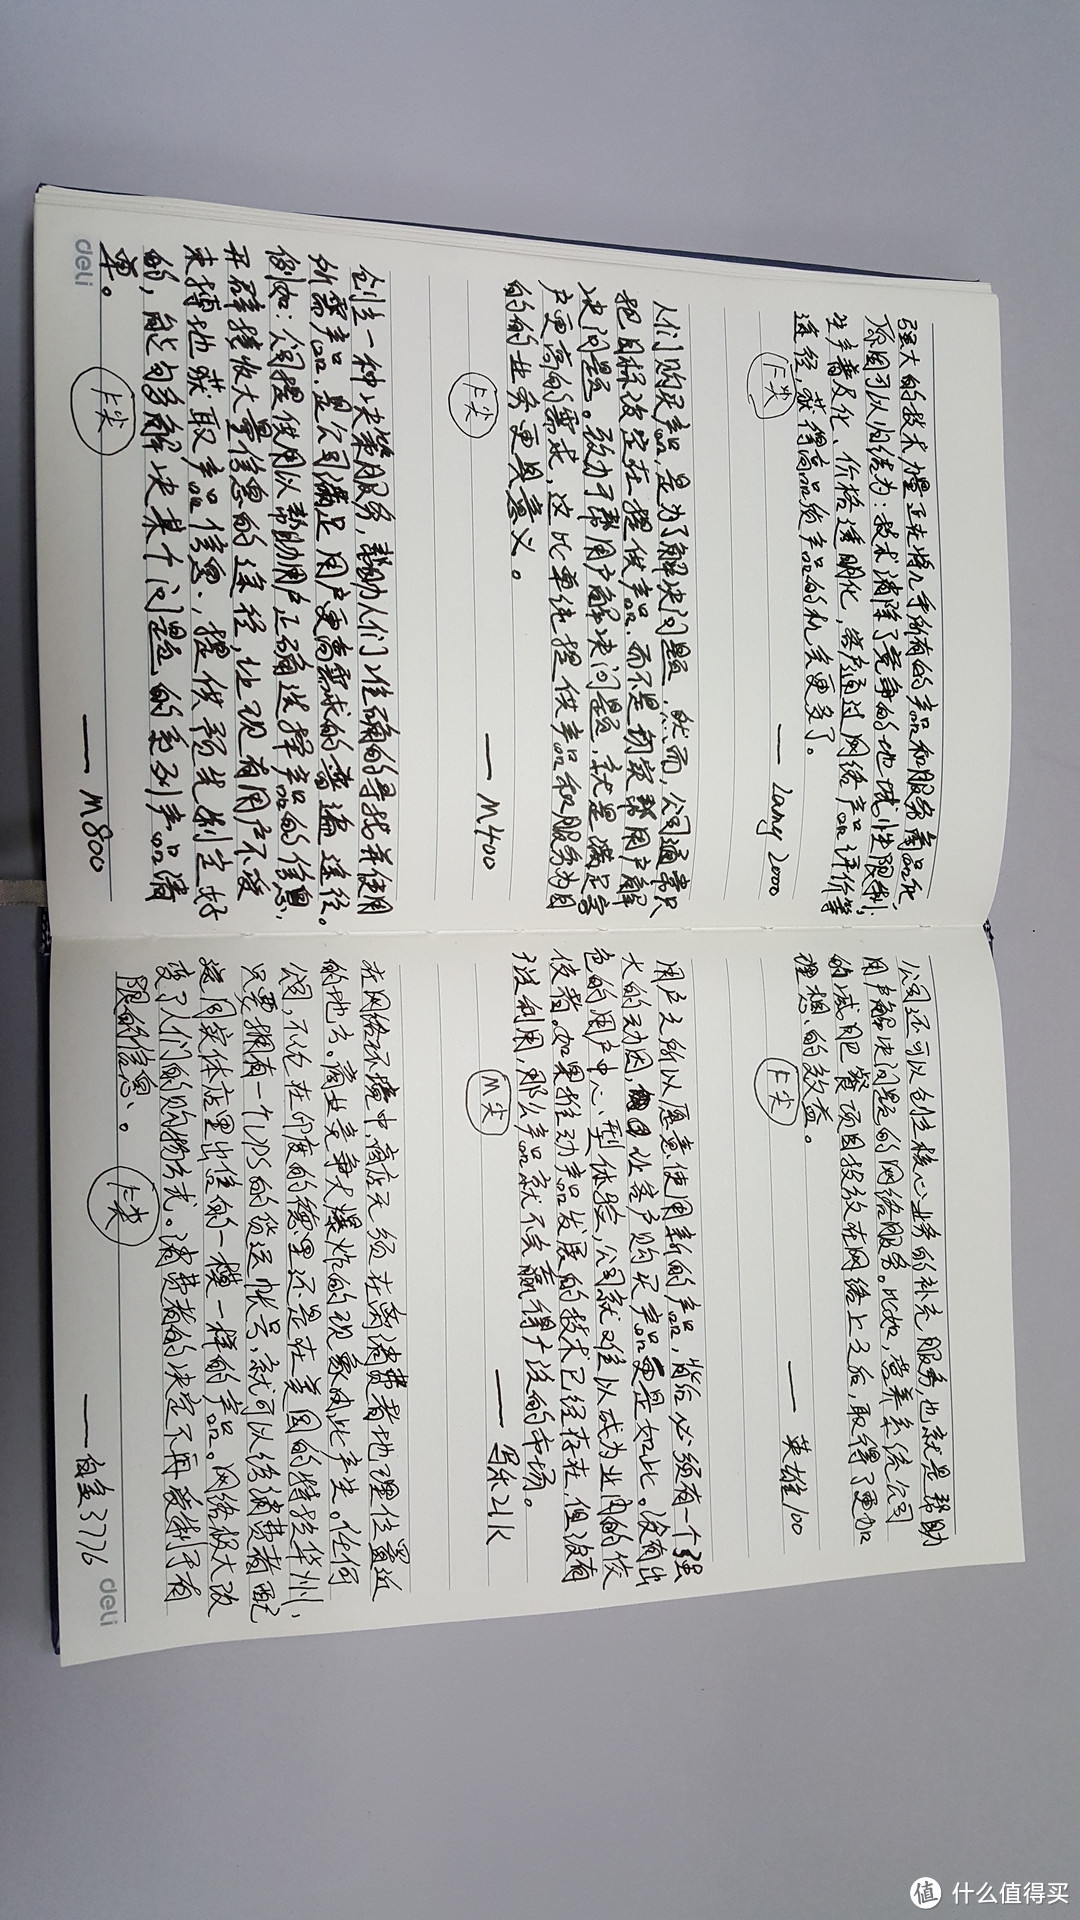 强大的技术力量正在将几乎所有的产品和服务商品化,
原因可以归结为:技术消除了竞争的地域性限制;
生产普及化、价格透明化,客户通过网络产品评价等
途径,获得高品质产品的机会更多了。
F尖
—— Lamy 2000
人们购买产品是为了解决问题,然而,公司通常只
把目标设定在提供产品.而不是切实帮用户解
决问题。致力于帮用户解决问题,就是满足客
户更高的需求,这比单纯提供产品和服务为目
的的业务更具意义。
F尖
—— M400
创立一种决策服务,帮助人们准确的寻找并使用
所需产品.是公司满足用户更高需求的普遍途径。
例如:公司提供用以帮助用户正确选择产品的信息,
开辟接收大量信息的途径,让现有用户不受
束搏地获取产品信息.,提供预先制定好
的,能够解决某个问题的系列产品清
单。
F尖
—— M800
deli
公司还可以创造核心业务的补充服务,也就是帮助
用户解决问题的网络服务。比如,营养系统公司
的减肥餐项目投放在网络上之后,取得了更加
理想的效益。
F尖
—— 英雄100
用户之所以愿意使用新的产品,背后必须有一个强
大的动因,让客户购买产品更是如此。没有出
色的用户中心型体验,公司就难以成为业内的佼
佼者。如果推动产品发展的技术已经存在,但没有
被利用,那么产品就不会赢得广泛的市场。
M尖
—— 写乐21K
在网络环境中商店无须在离消费者地理位置近
的地方。商业竞争大爆炸的现象由此产生。任何
公司,不论在印度的德里还是在美国的特拉华州,
只要拥有一个UPS的货运帐号,就可以给消费者配
送同实体店里出售的一模一样的产品。网络极大改
变了人们的购物方式。消费者的决定不再受制于有
限的信息、。
F尖
—— 白金3776
deli
值 什么值得买